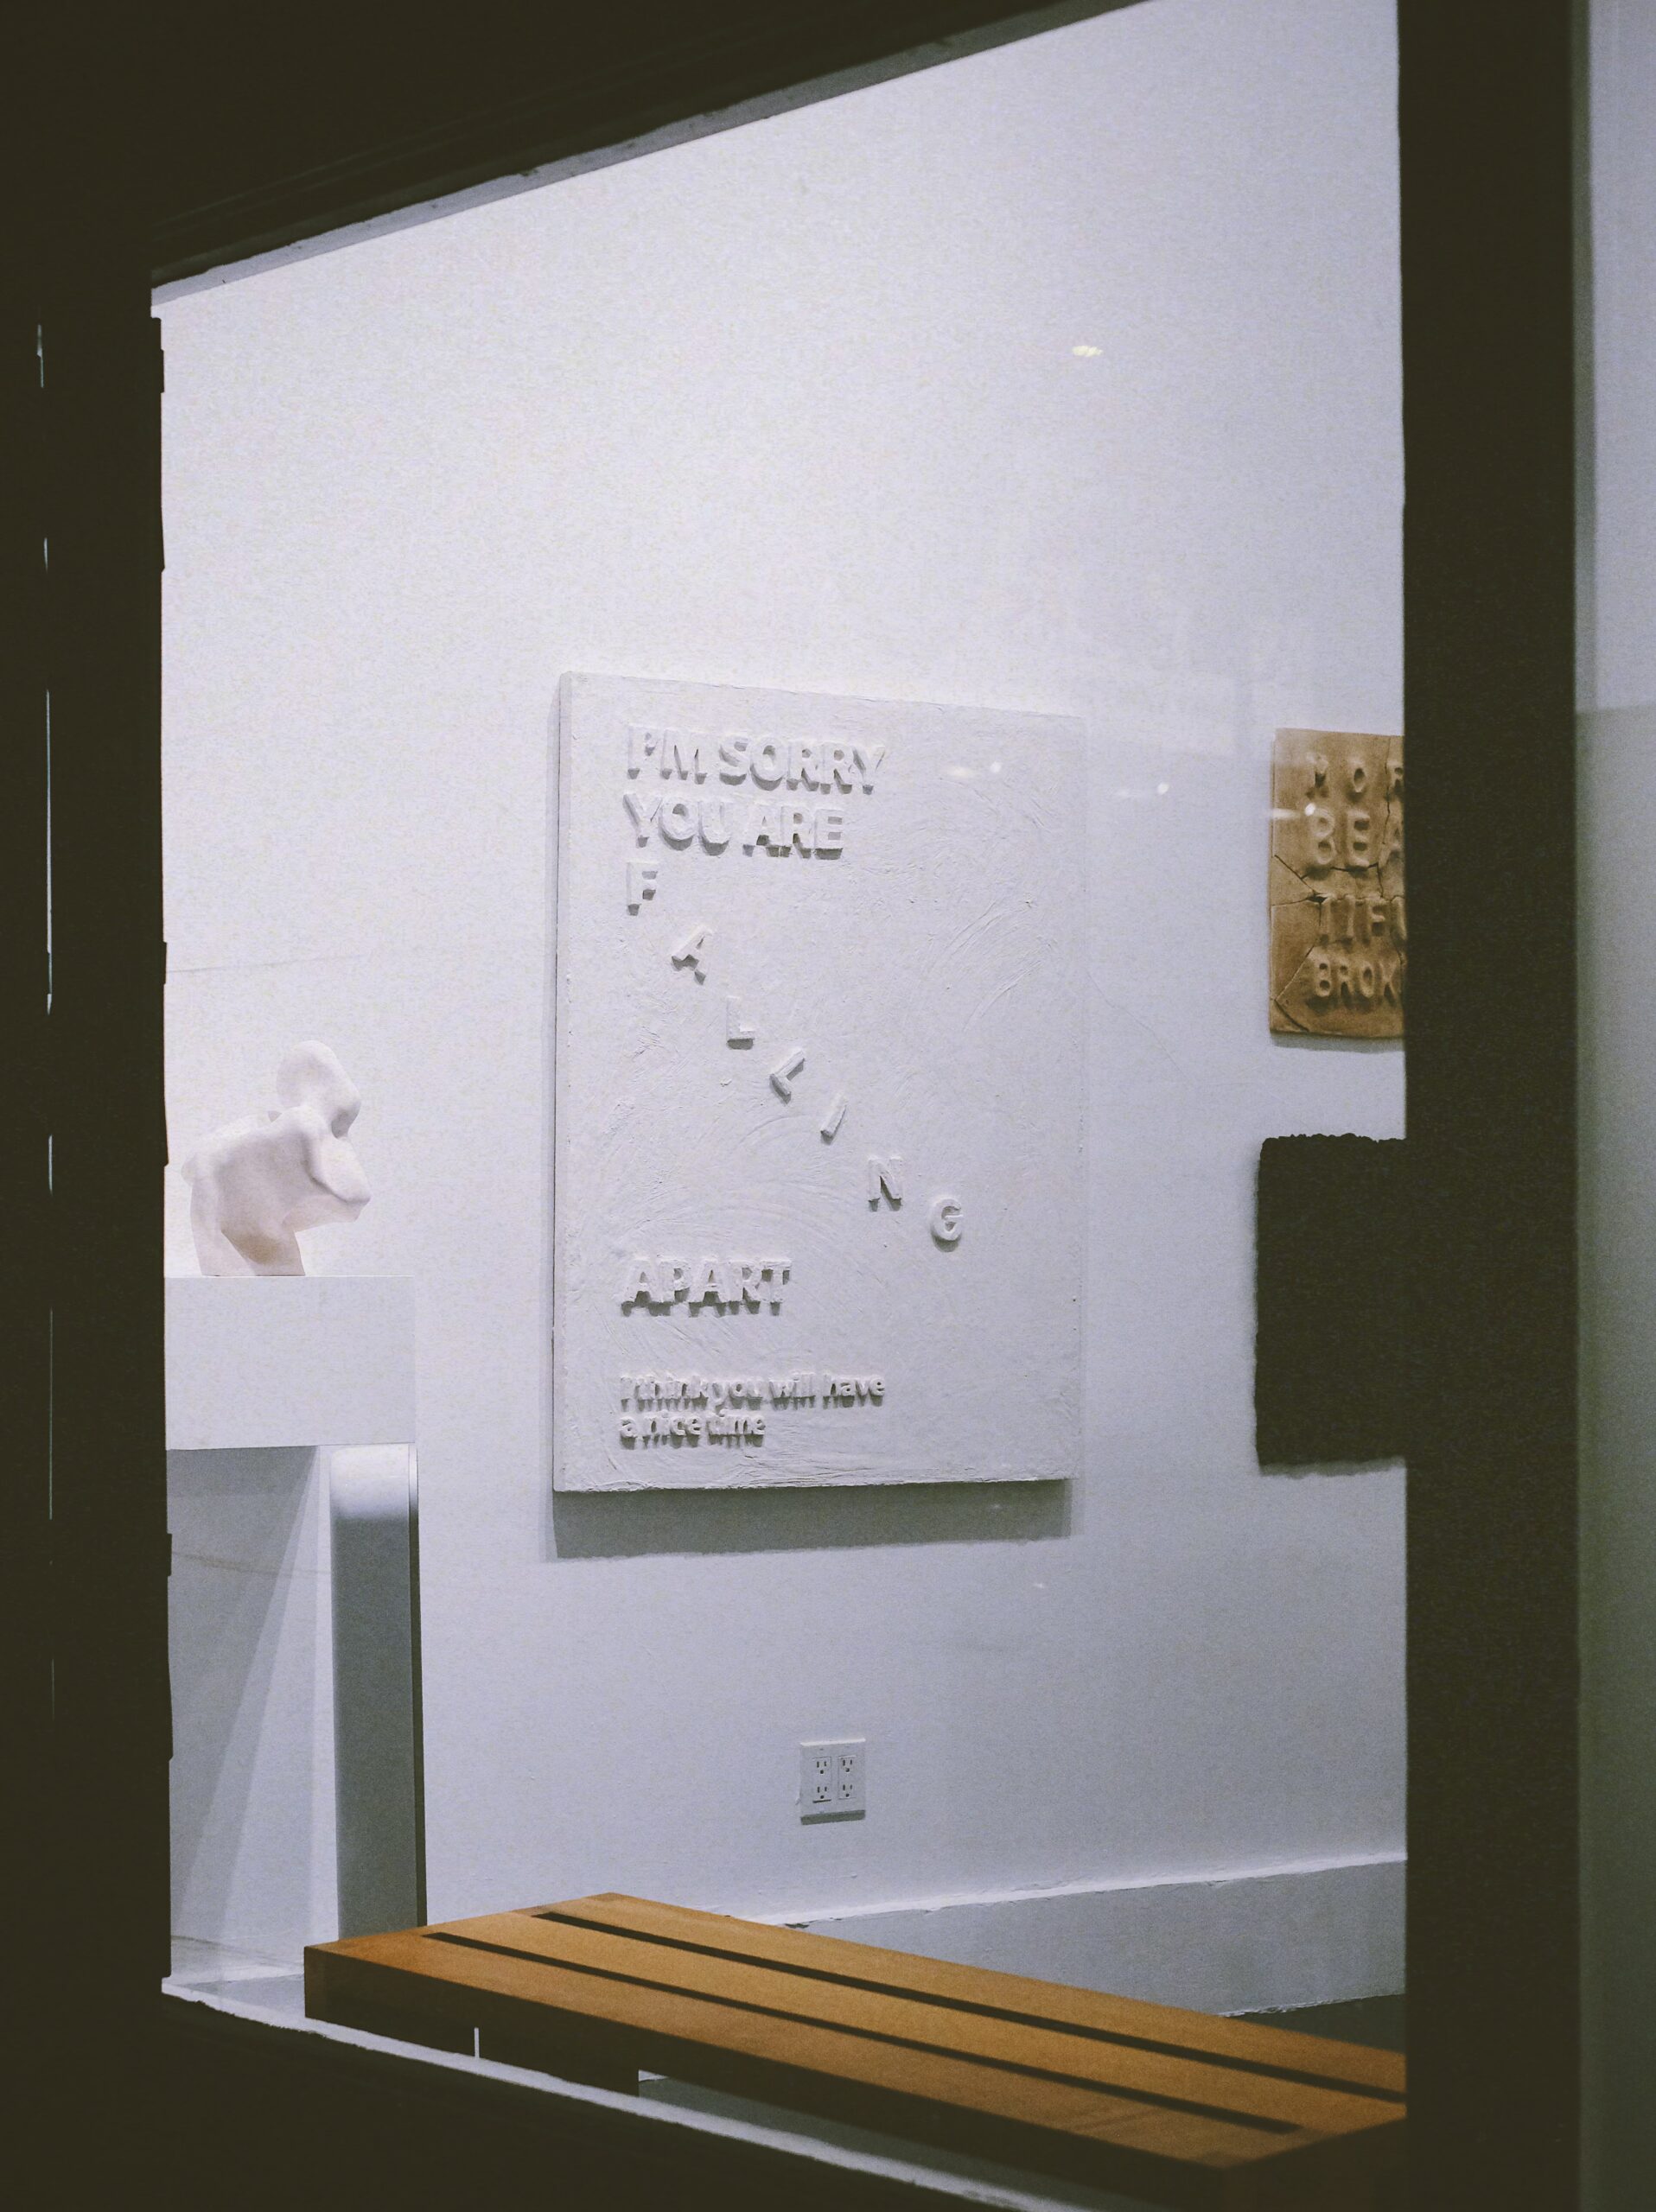 I'M SORRY
YOU ARE
F
A
L
L
I
N
G
APART
I think you will have
a nice time
MOR
BEA
TIFU
BROK